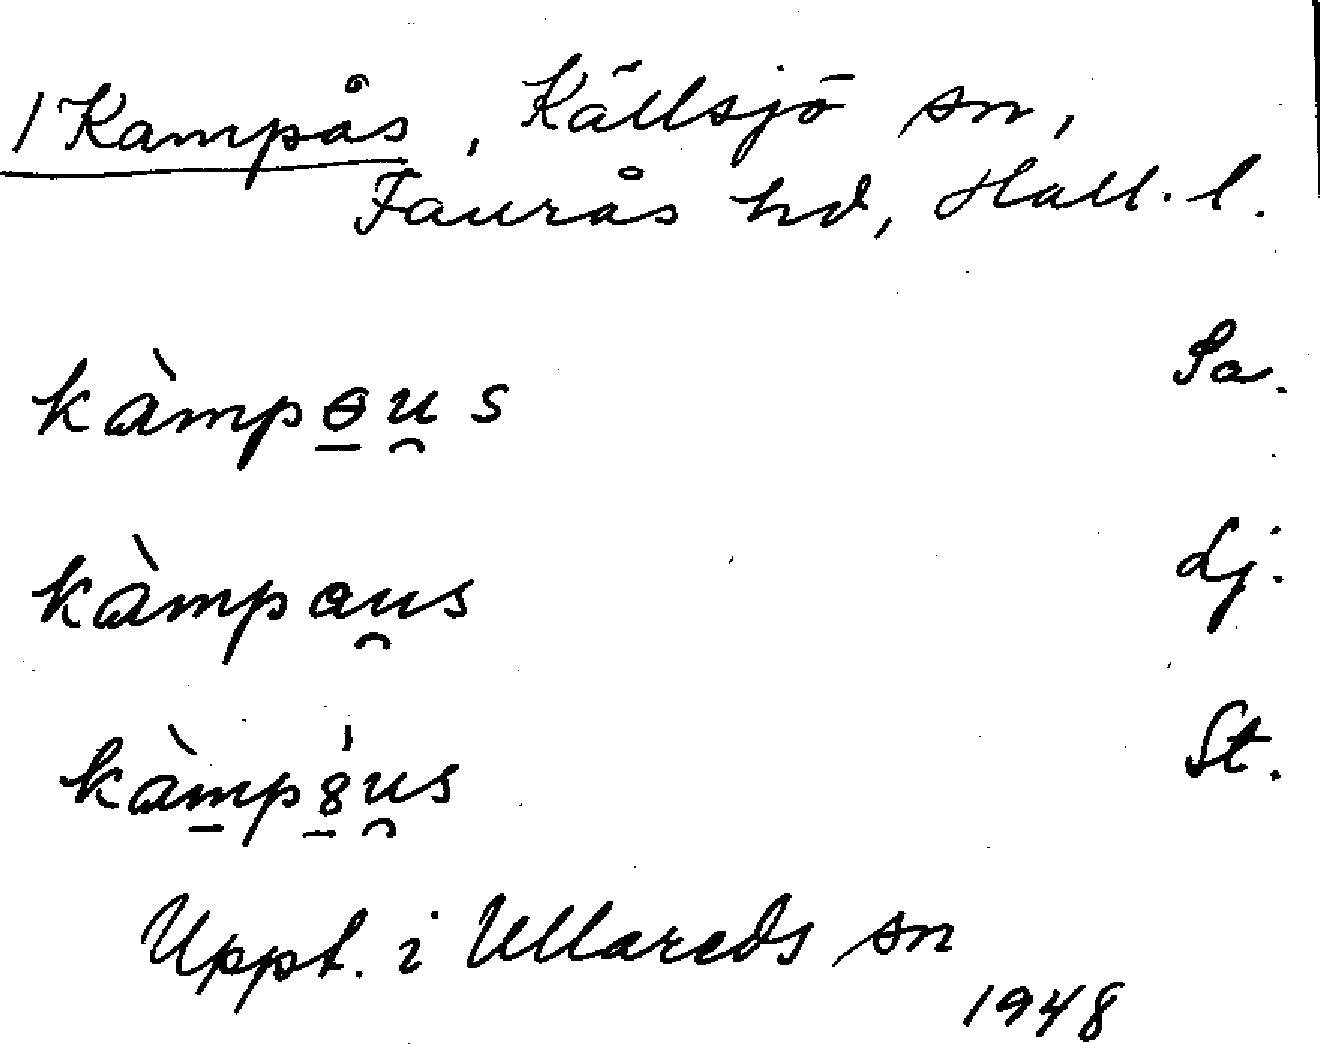 1 Kampås, Källsjö sn,
Faurås hd, Hall. l.
kàmpɵu̯s Sa.
kàmpau̯s Lj.
kàmp8́u̯s St.
Uppt. i Ullareds sn
1948